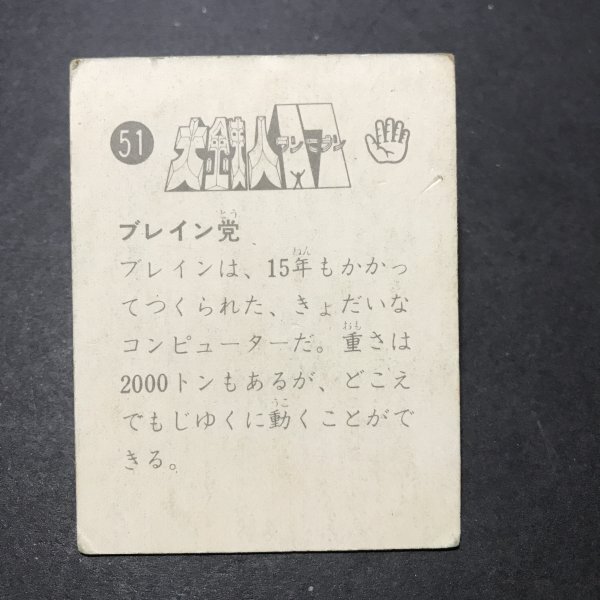 51
大鉄人17
ワンセブン
ブレイン党
とう
ブレインは、15年もかかっ
ねん
てつくられた、きょだいな
コンピューターだ。重さは
おも
2000トンもあるが、どこえ
でもじゆくに動くことがで
うご
きる。